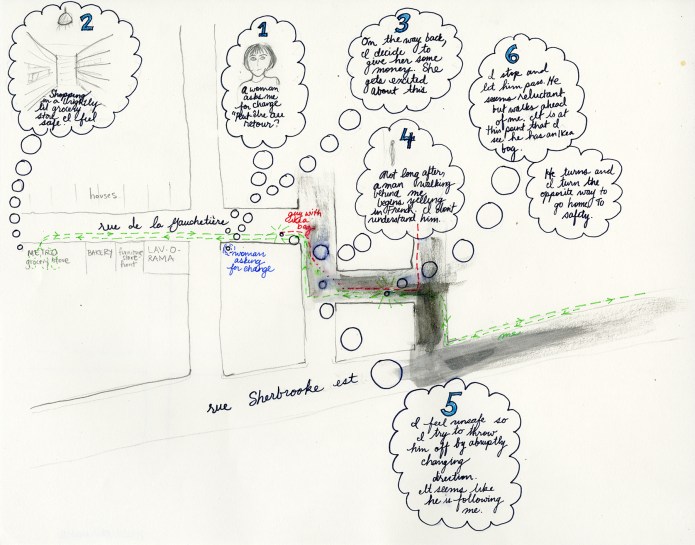 2
Shopping
in a
lil grocery
store. I feel
safe.
1
a woman
asks me
for change
retour?"
3
On the way back,
I decide to
give her some
money. She
gets excited
about this.
4
Not long after,
a man walking
behind me
begins yelling
in French. I don't
understand him.
6
I stop and
let him pass. He
seems reluctant
but walks ahead
of me. It is at
this point that I
see he has an Ikea
bag.
He turns and
I turn the
opposite way to
go home. To
safety.
houses
rue de la Gauchetière
guy with
ikea
bag
METRO
grocery store
BAKERY
store
front
LAV-O-
RAMA
woman
asking
for change
me
rue Sherbrooke est
5
I feel unsafe so
I try to throw
him off by abruptly
changing
direction.
It seems like
he is following
me.